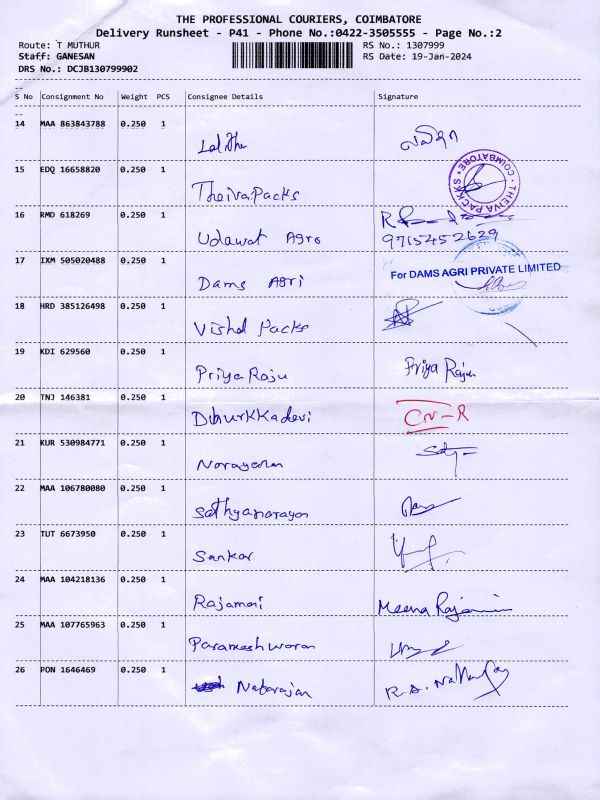 THE PROFESSIONAL COURIERS, COIMBATORE
Delivery Runsheet - P41 - Phone No.:0422-3505555 - Page No.:2
Route: T MUTHUR RS No.: 1307999
Staff: GANESAN RS Date: 19-Jan-2024
DRS No.: DCJB130799902
S No Consignment No Weight PCS Consignee Details Signature
14 MAA 863843788 0.250 1
Lalitha லலிதா
15 EDQ 16658820 0.250 1
Theiva Packs THEIVA PACKS COIMBATORE
16 RMD 618269 0.250 1
Udawat Agro 9715452629
17 IXM 505020488 0.250 1
Dams Agri For DAMS AGRI PRIVATE LIMITED
18 HRD 385126498 0.250 1
Vishal Packs
19 KDI 629560 0.250 1
Priya Raju Priya Raju
20 TNJ 146381 0.250 1
CN-R
21 KUR 530984771 0.250 1
Narayanan
22 MAA 106780080 0.250 1
Sathyanarayan
23 TUT 6673950 0.250 1
Sankar
24 MAA 104218136 0.250 1
Rajamani Meena Rajamani
25 MAA 107765963 0.250 1
Parameshwaran
26 PON 1646469 0.250 1
Natarajan R.A.